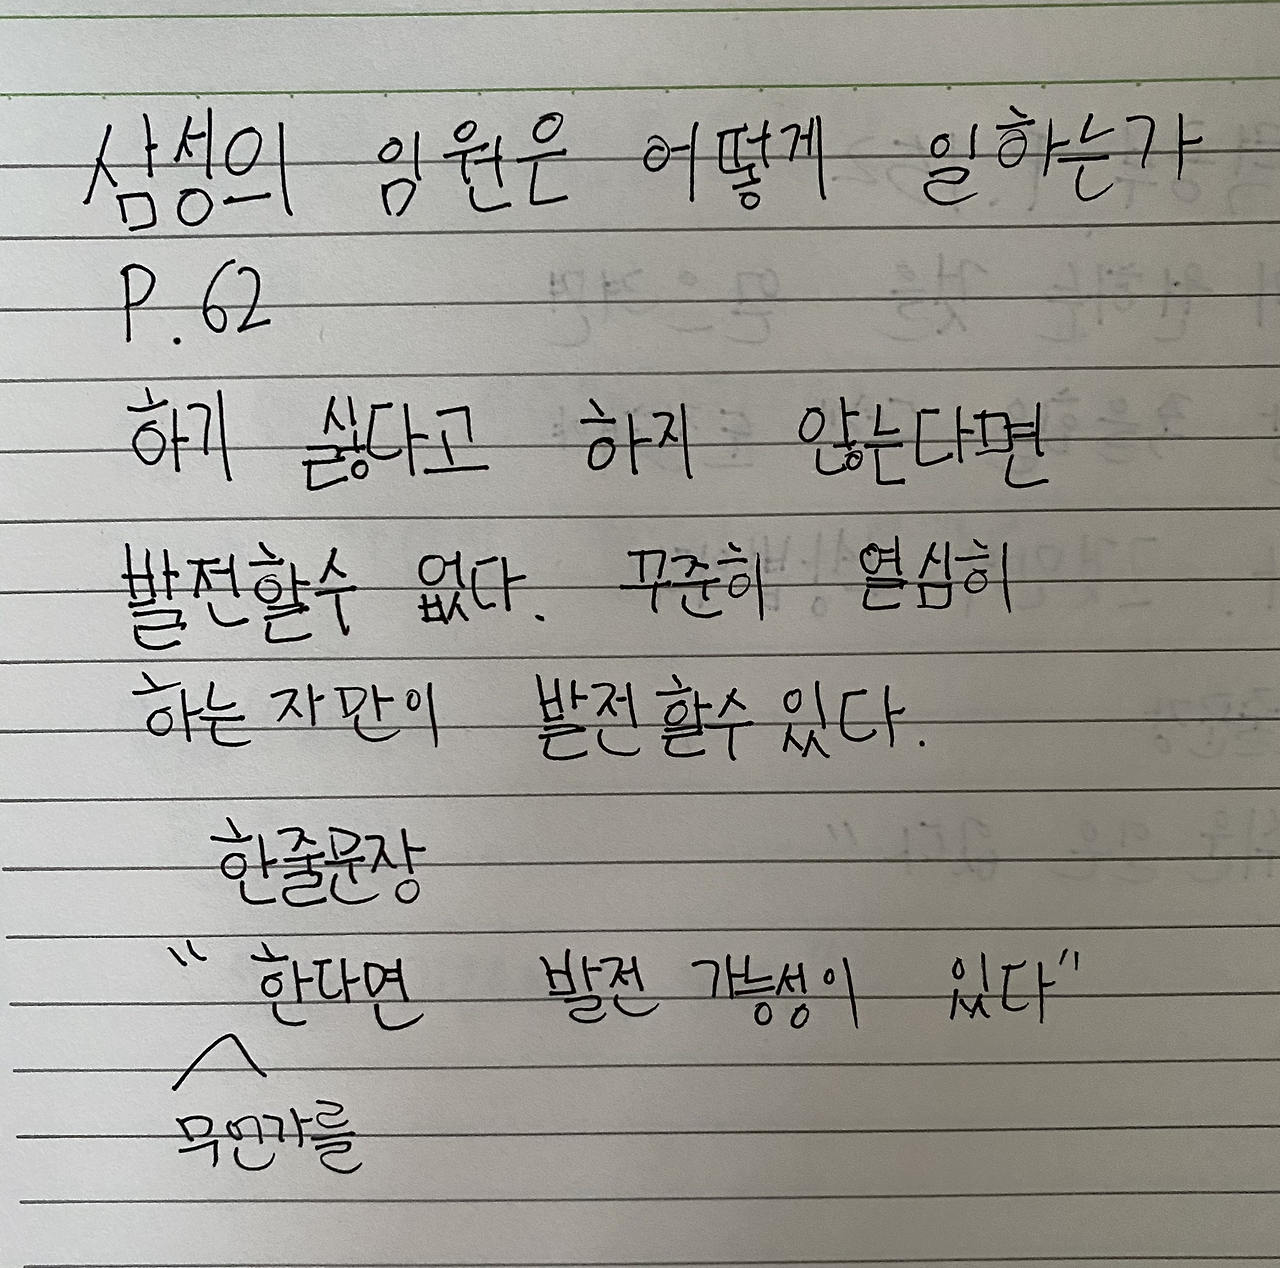 삼성의 임원은 어떻게 일하는가
P. 62
하기 싫다고 하지 않는다면
발전할수 없다. 꾸준히 열심히
하는 자만이 발전할수 있다.
한줄문장
" 한다면 발전 가능성이 있다"
무언가를